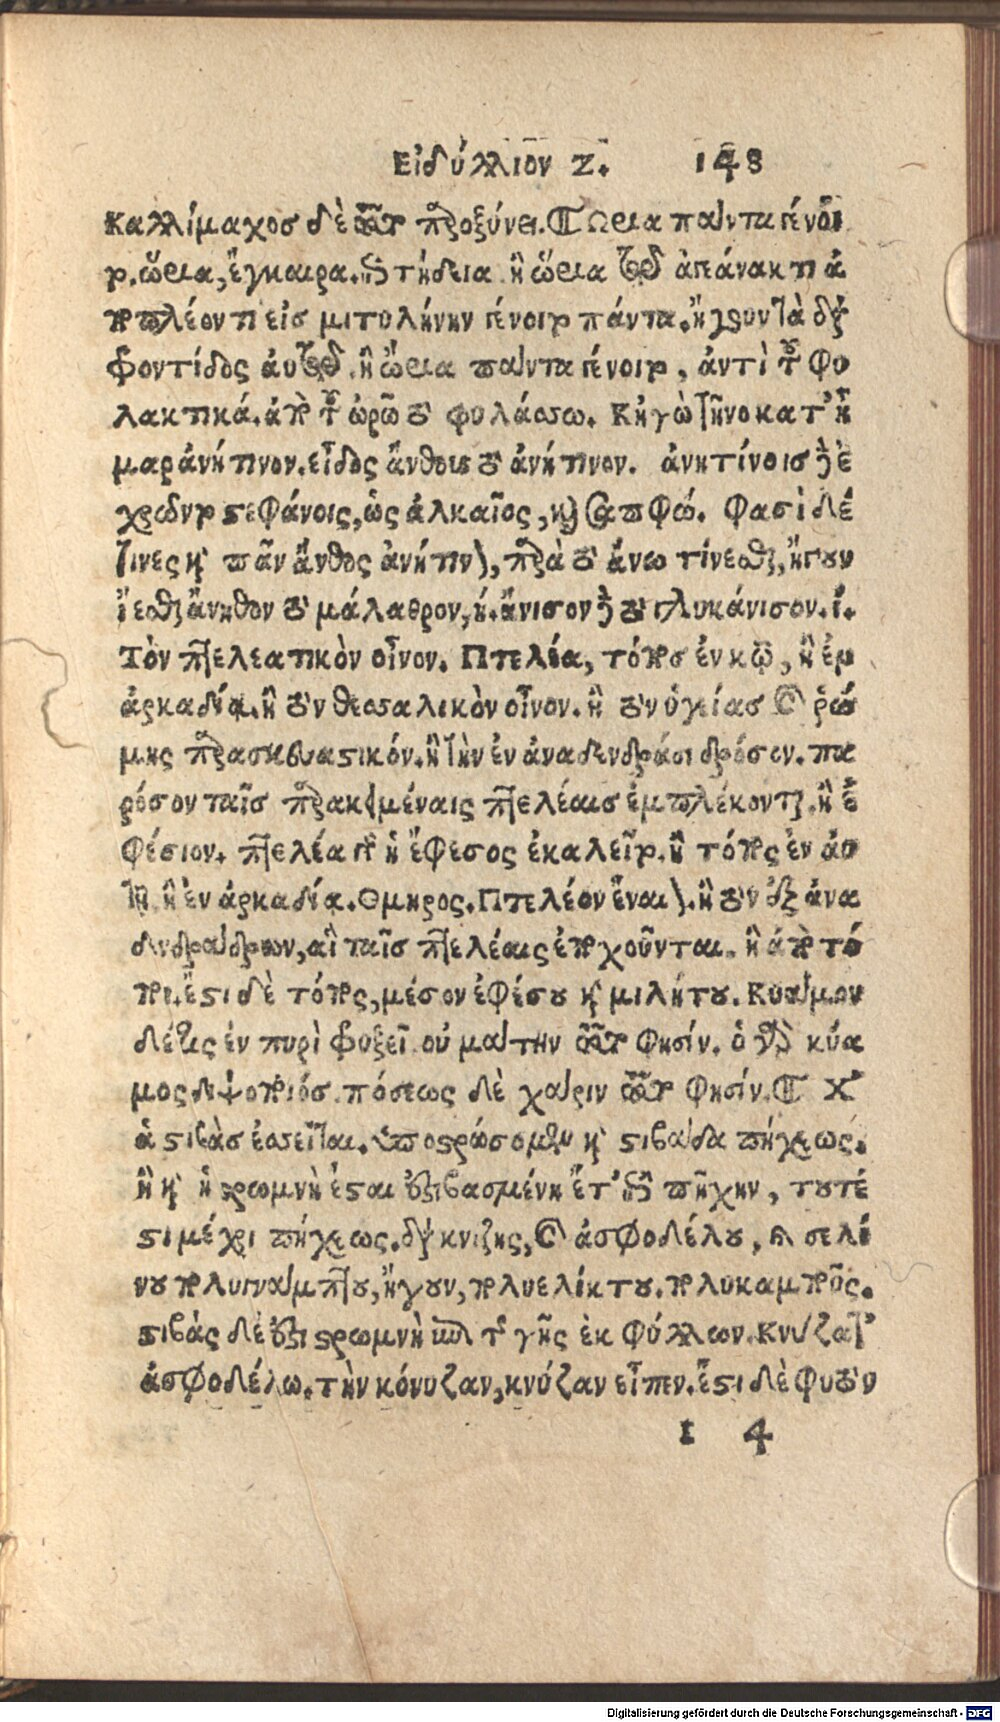 Εἰδύλλιον Ζ. 148
Καλλίμαχοσ δὲ αὐτὸ παροξύνει. Ὥρια πάντα γένοι
το. ὥρια, ἔγκαιρα. ἐπιτήδεια. ἢ ὥρια τοῦ ἀπεάνακτι ἀ
ποπλέοντι εἰσ μιτυλήνην γένοιτο πάντα. ἤγουν τὰ διὰ
φροντίδος αὐτοῦ. ἢ ὥρια πάντα γένοιτο, ἀντὶ τοῦ φυ
λακτικά. ἀπὸ τοῦ ὠρῶ τὸ φυλάσσω. Κἠγὼ τῆνο κατ' ἦ
μαρ ἀνήτινον. εἶδος ἄνθους τὸ ἀνήτινον. ἀνητίνοισ γὰρ ἐ
χρῶντο στεφάνοις, ὡς ἀλκαῖος, καὶ Σαπφώ. Φασὶ δέ
τινες καὶ πᾶν ἄνθος ἀνήτινον, παρὰ τὸ ἄνω γίνεσθαι, ἤγουν
ἵεσθαι ἄνηθον τὸ μάλαθρον, ἢ ἄνισον γὰρ τὸ γλυκάνισον.
Τὸν πτελεατικὸν οἶνον. Πτελέα, τόποσ ἐν κῷ, ἢ ἐν
ἀρκαδίᾳ. ἢ τὸν θεσσαλικὸν οἶνον. ἢ τὸν ὑγείασ καὶ ῥώ
μης παρασκευαστικόν. ἢ τὴν ἐν ἀναδενδράσι δρόσον. πα
ρόσον ταῖσ παρακειμέναις πτελέαισ ἐμπλέκονται. ἢ ἐ
φέσιον. πτελέα γὰρ ἡ ἔφεσος ἐκαλεῖτο. ἢ τόπος ἐν
ἢ ἐν ἀρκαδίᾳ. Ομηρος. Πτελέον εἶναι. ἢ τὸν ἐξ ἀνα
δενδράδων, αἳ ταῖσ πτελέαις ἐποχοῦνται. ἢ ἀπὸ τό
που. ἔστι δὲ τόπος, μέσον ἐφέσου καὶ μιλήτου. Κύαμον
δέ τις ἐν πυρὶ φρυξεῖ. οὐ μάτην αὐτὸ φησίν. ὁ γὰρ κύα
μος διψοποιός. πόσεως δὲ χάριν αὐτὸ φησίν. Χ'
ἁ στιβὰσ ἐσσεῖται. ὑποστρώσομεν καὶ στιβάδα πήχεως.
ἢ καὶ ἡ στρωμνὴ ἔσται ἐστιβασμένη ἔστ' ἐπὶ πῆχην, τουτέ
στι μέχρι πήχεως. διὰ κνίζης, καὶ ἀσφοδέλου, καὶ σελί
νου πολυγνάμπτου, ἤγουν, πολυελίκτου. πολυκαμποῦς.
στιβὰς δὲ ἐστι στρωμνὴ ἐπὶ τῆς γῆς ἐκ φύλλων. Κνύζα τ'
ἀσφοδέλω. τὴν κόνυζαν, κνύζαν εἶπεν. ἔστι δὲ φυτὸν
I 4
Digitalisierung gefördert durch die Deutsche Forschungsgemeinschaft - DFG